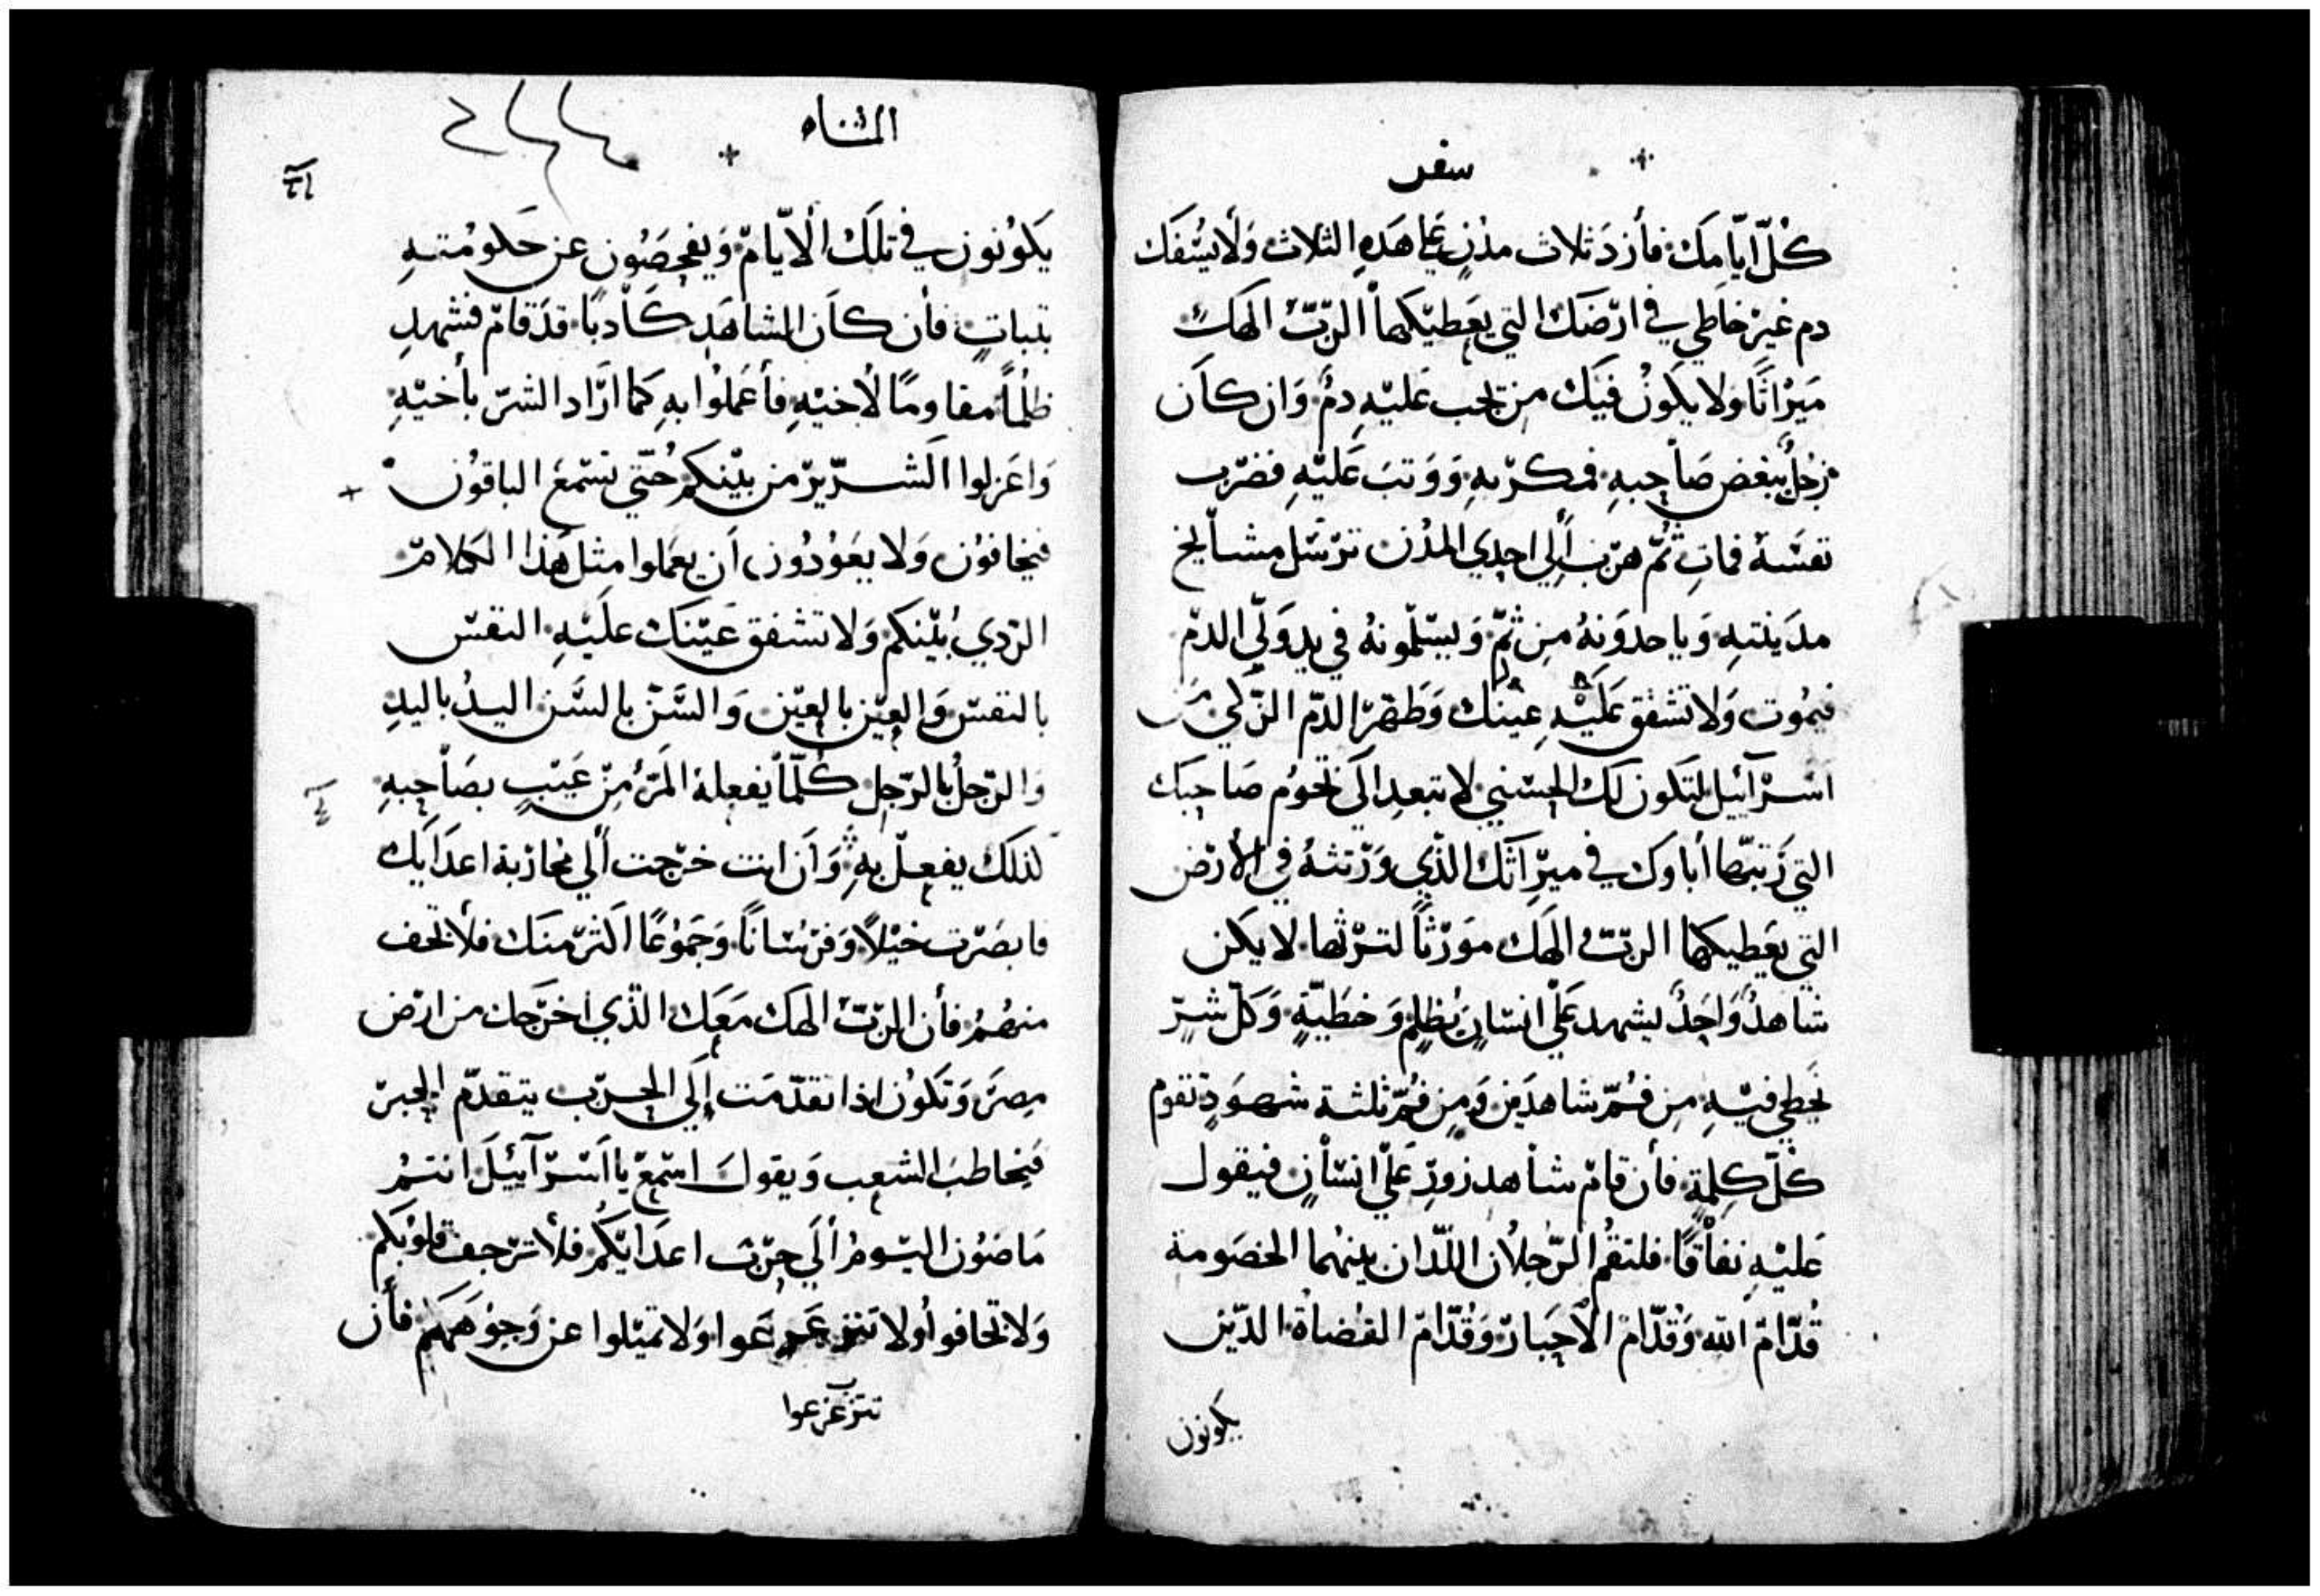 سفر
كُلّ ايّامِك فأزدَ ثلاث مدُنٍ علي هَدهِ الثلاث وَلا يسُفك
دم غيرْ خاطي في ارّضَك التي يعَطيَكها الربّ الهَك
مَيرْاثًا وَلا يكَونُ فيَك من تجب عَليْهِ دمٌ وَان كاَن
رَجلٌ يبغض صَاحِبهِ فمكرّ بهِ وَوَتبَ عَليْهِ فضرّب
نفسَهُ فماتِ ثُمّ هرّب اٍلي احِدي المدُن ترّسَل مشايخ
مدَينتهِ وَياخدوَنهُ مِن ثمّ وَيسَلّمونهُ في يد وَلّي الدمّ
فيمُوت وَلا تشفق عَليْهِ عينْك وَطهَرّ الدمّ الزّكي من
اسَرْآئيل لتكَون لك الحِسَني لا تبعدِ الَي تخومُ صَاحِبَك
التي رَتبّها أباوَك في ميرّاَثَك الذّي وَرّتثهُ في الأرّض
التي يعَطيكها الربّ الهَك موَرّثاً لترّثها لا يكَن
شاهدٌ وَاحَدٌ ليشهد عَلي انسَانٍ بُظلمٍ وَخطَيّةٍ وَكلّ شرٍّ
يُخطي فيْهِ مِن فُمّ شاهدَين وَمِن فُمّ ثلثة شهوَدٍ تقوم
كُلّ كِلمةٍ فأن قامّ شاهد زورّ عَلي انسَانٍ فيقول
عَليْهِ نفاقًا فلتقُم الرّجلاُن اللّدان بينهُما الخصَومة
قُدّامّ الله وَقُدّامّ الأحَبارّ وَقُدّامّ القضاةُ الدّين
يكونون
المثناه
يَكوُنون في تلَك الأيّامّ وَيفحصَوُن عن حَكومُتهِ
بتباتٍ فأن كاَن الشاهَد كَاَدبًا قدَ قامّ فشهدِ
ظلمًاً مقاومًا لأخيْهِ فأعَملوُا بهِ كَما ارَّاد الشرّ بأخيْهِ
وَاعَزلوا الَشرّيرّ من بيْنكمُ حُتّي يسَمعَ الباقوُن
فيخافوُن وَلا يعَوُدُون اَن يعَملوا مِثلَ هَذا الكَلامّ
الرّدي بُيّنكم وَلا تشفق عَيّنَك علَيْهِ النفسّ
بالنفسّ وَالعِيّن بالعِيّن وَالسَّنّ بالسَّن اليدُ باليدِ
وَالرّجلُ بالرّجِل كُلّما يفعلهُ المَرّءُ مِنّ عَيبٍ بصَاحِبهِ
لذلك يفعلّ بهِ وَاَن انت خرّجت اٍلي محارّبة اعدَايَك
فابصَرّت خيْلاً وَفرّسَانًا وَجَموُعًا اكَثرّ منَك فلاْ تخف
منهُمُ فأن الربّ الهَك مَعَك الذّي اخرّجَك من ارّض
مِصرَ وَتكَون اذا تقدّمَت اِلَي الحرّب يتقدّم الحِبرّ
فيخاطبَ الشعب وَيقولَ اسَمعّ يا اسَرّآئيلَ انتمُ
مَاضوُن اليَومُ اٍلَي حِرّب اعدَايّكُم فلاْ ترّجف قلوُبكَم
وَلا تخافوا وُلا تتزعزعَوا وَلا تميّلوا عن وَجوُهَهَم فأن
تتزعزعوا